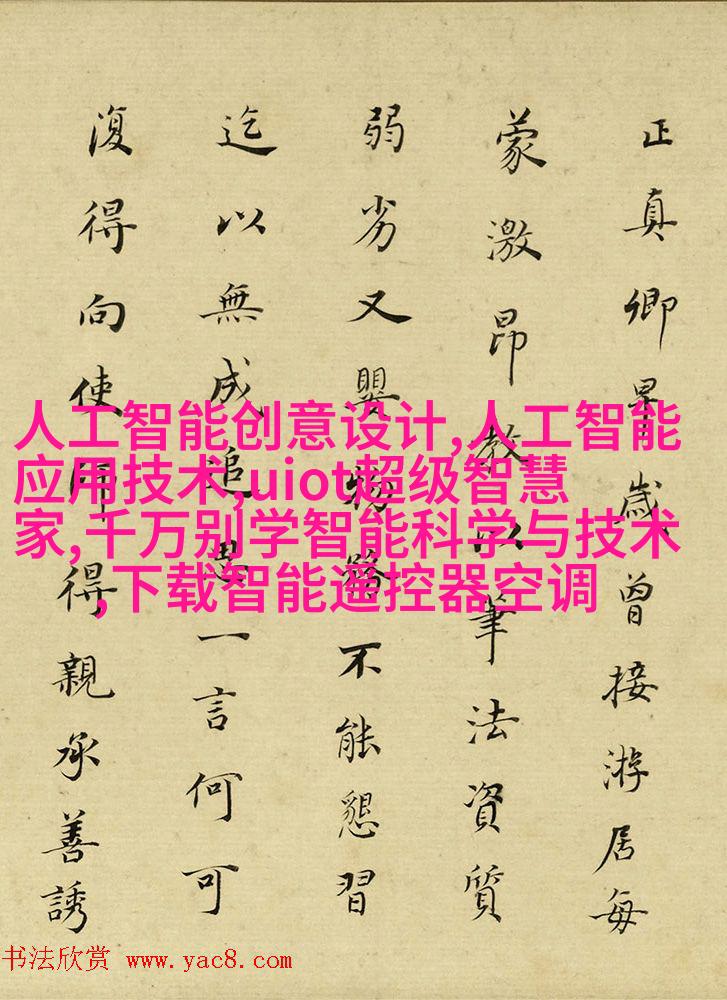 正真卿早歲曾接游居每
蒙激昂教以筆法資質
弱劣又嬰物不能懇習
迄以無成追思一言何可
復得向使師得親承善誘
人工智能创意设计,人工智能
应用技术,uiot超级智慧
家,千万别学智能科学与技术
,下载智能遥控器空调
书法欣赏 www.yac8.com